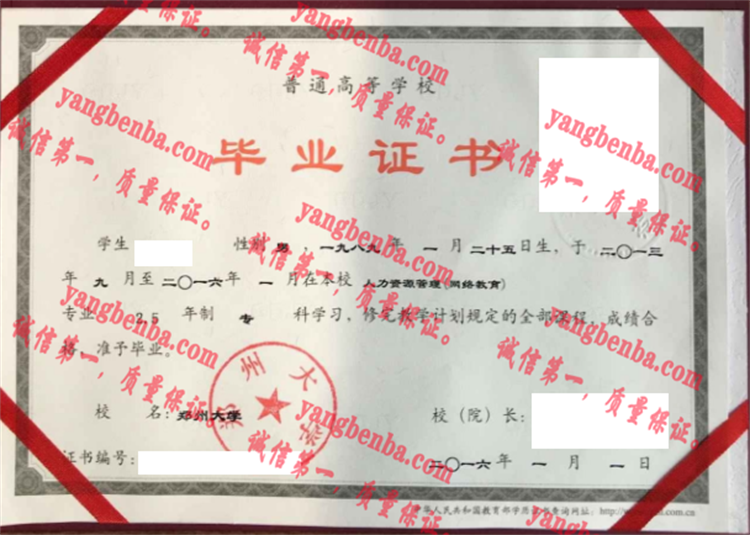 普通高等学校
毕业证书
学生 性别 男 ，一九八九 年 一 月 二十五日生，于 二〇一三
年 九 月至 二〇一六年 一 月在本校 人力资源管理(网络教育)
专业 2.5 年制 专 科学习，修完教学计划规定的全部课程，成绩合
格，准予毕业。
郑州大学
校 名：郑州大学 校（院）长：
证书编号： 二〇一六年 一 月 一 日
中华人民共和国教育部学历证书查询网址：
yangbenba.com
诚信第一，质量保证。
yangbenba.com
诚信第一，质量保证。
yangbenba.com
诚信第一，质量保证。
yangbenba.com
诚信第一，质量保证。
yangbenba.com
诚信第一，质量保证。
yangbenba.com
诚信第一，质量保证。
yangbenba.com
诚信第一，质量保证。
yangbenba.com
诚信第一，质量保证。
yangbenba.com